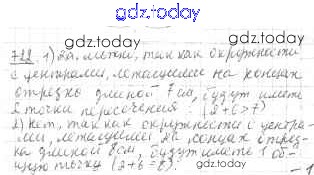 gdz.today
gdz.today
722 1) Да, можно, так как окружности
с центрами, лежащими на концах
отрезка длиной 7 см, будут иметь
2 точки пересечения (2+6>7)
2) Нет, так как окружности с центра-
ми, лежащими на концах отрез-
ка длиной 8 см, будут иметь 1 об-
щую точку (2+6=8).
gdz.today